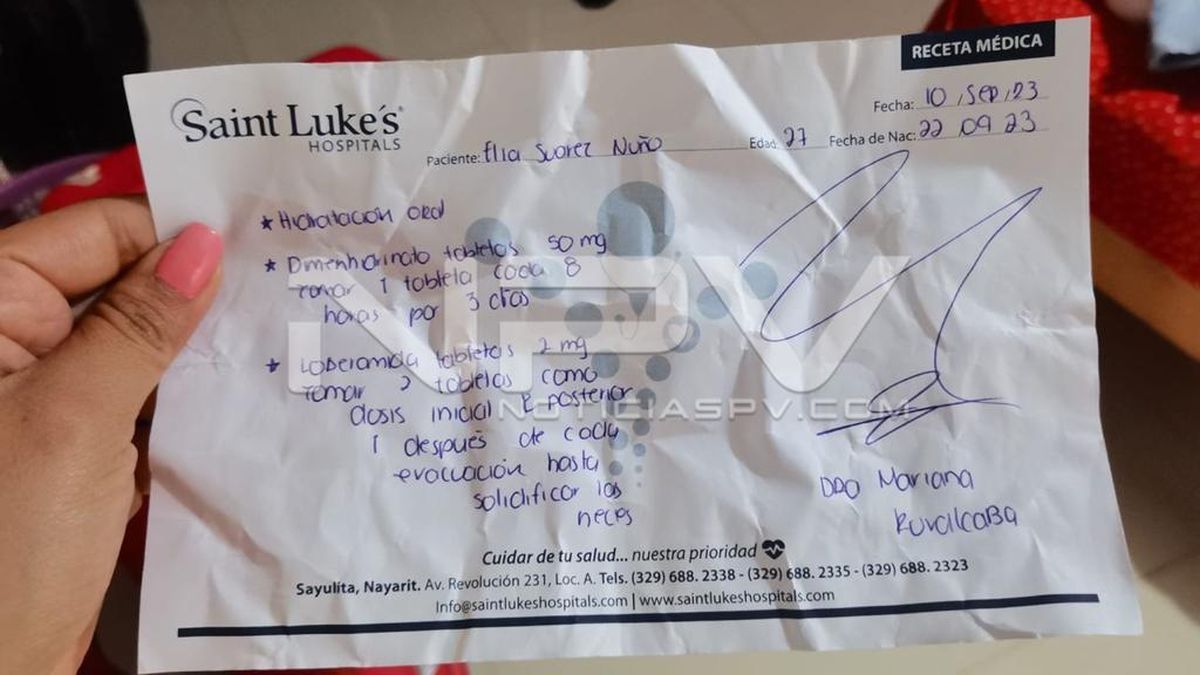 RECETA MÉDICA
Saint Luke's
HOSPITALS
Fecha: 10, Sep, 23
Paciente: Elia Suarez Nuño Edad: 27 Fecha de Nac: 22 09 23
* Hidratación oral
* Dmenhidrinato tabletas 50 mg
tomar 1 tableta cada 8
horas por 3 días
* Loperamida tabletas 2 mg
tomar 2 tabletas como
dosis inicial posterior
1 después de cada
evacuación hasta
solidificar las
heces
NPV
NOTICIASPV.COM
Mariana
Ruvalcaba
Cuidar de tu salud... nuestra prioridad
Sayulita, Nayarit. Av. Revolución 231, Loc. A. Tels. (329) 688. 2338 - (329) 688. 2335 - (329) 688. 2323
Info@saintlukeshospitals.com | www.saintlukeshospitals.com